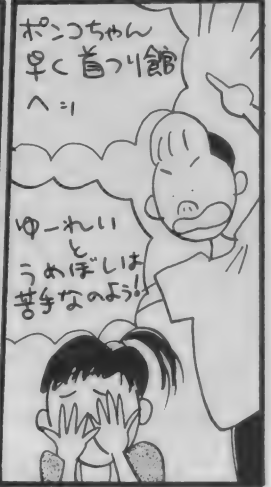 ポンコちゃん
早く首つり館
へ!!
ゆーれい
と
うめぼしは
苦手なのよう!